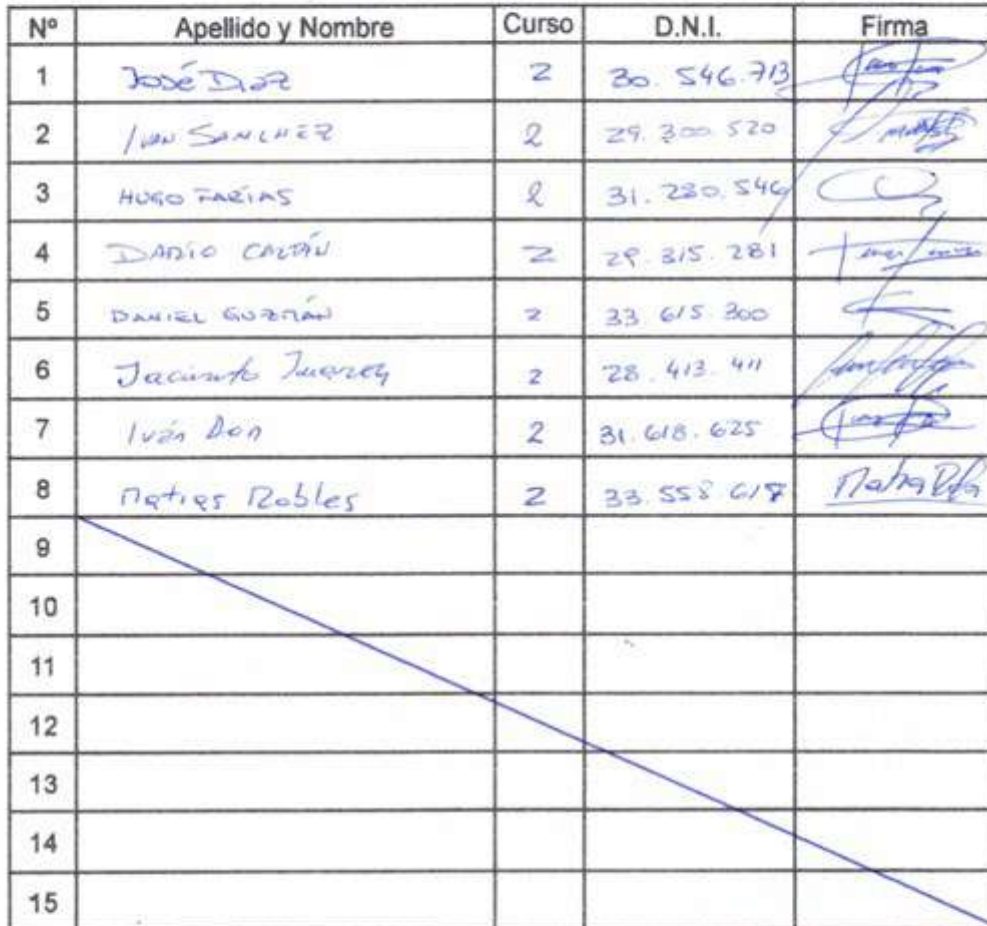 Nº Apellido y Nombre Curso D.N.I. Firma
1 José Díaz 2 30.546.713
2 IVAN SANCHEZ 2 29.300.520
3 HUGO FARÍAS 2 31.280.546
4 DARÍO 2 29.315.281
5 DANIEL GUZMÁN 2 33.615.300
6 Jacinto Juarez 2 28.413.411
7 Iván 2 31.618.625
8 Matias Robles 2 33.558.617
9
10
11
12
13
14
15